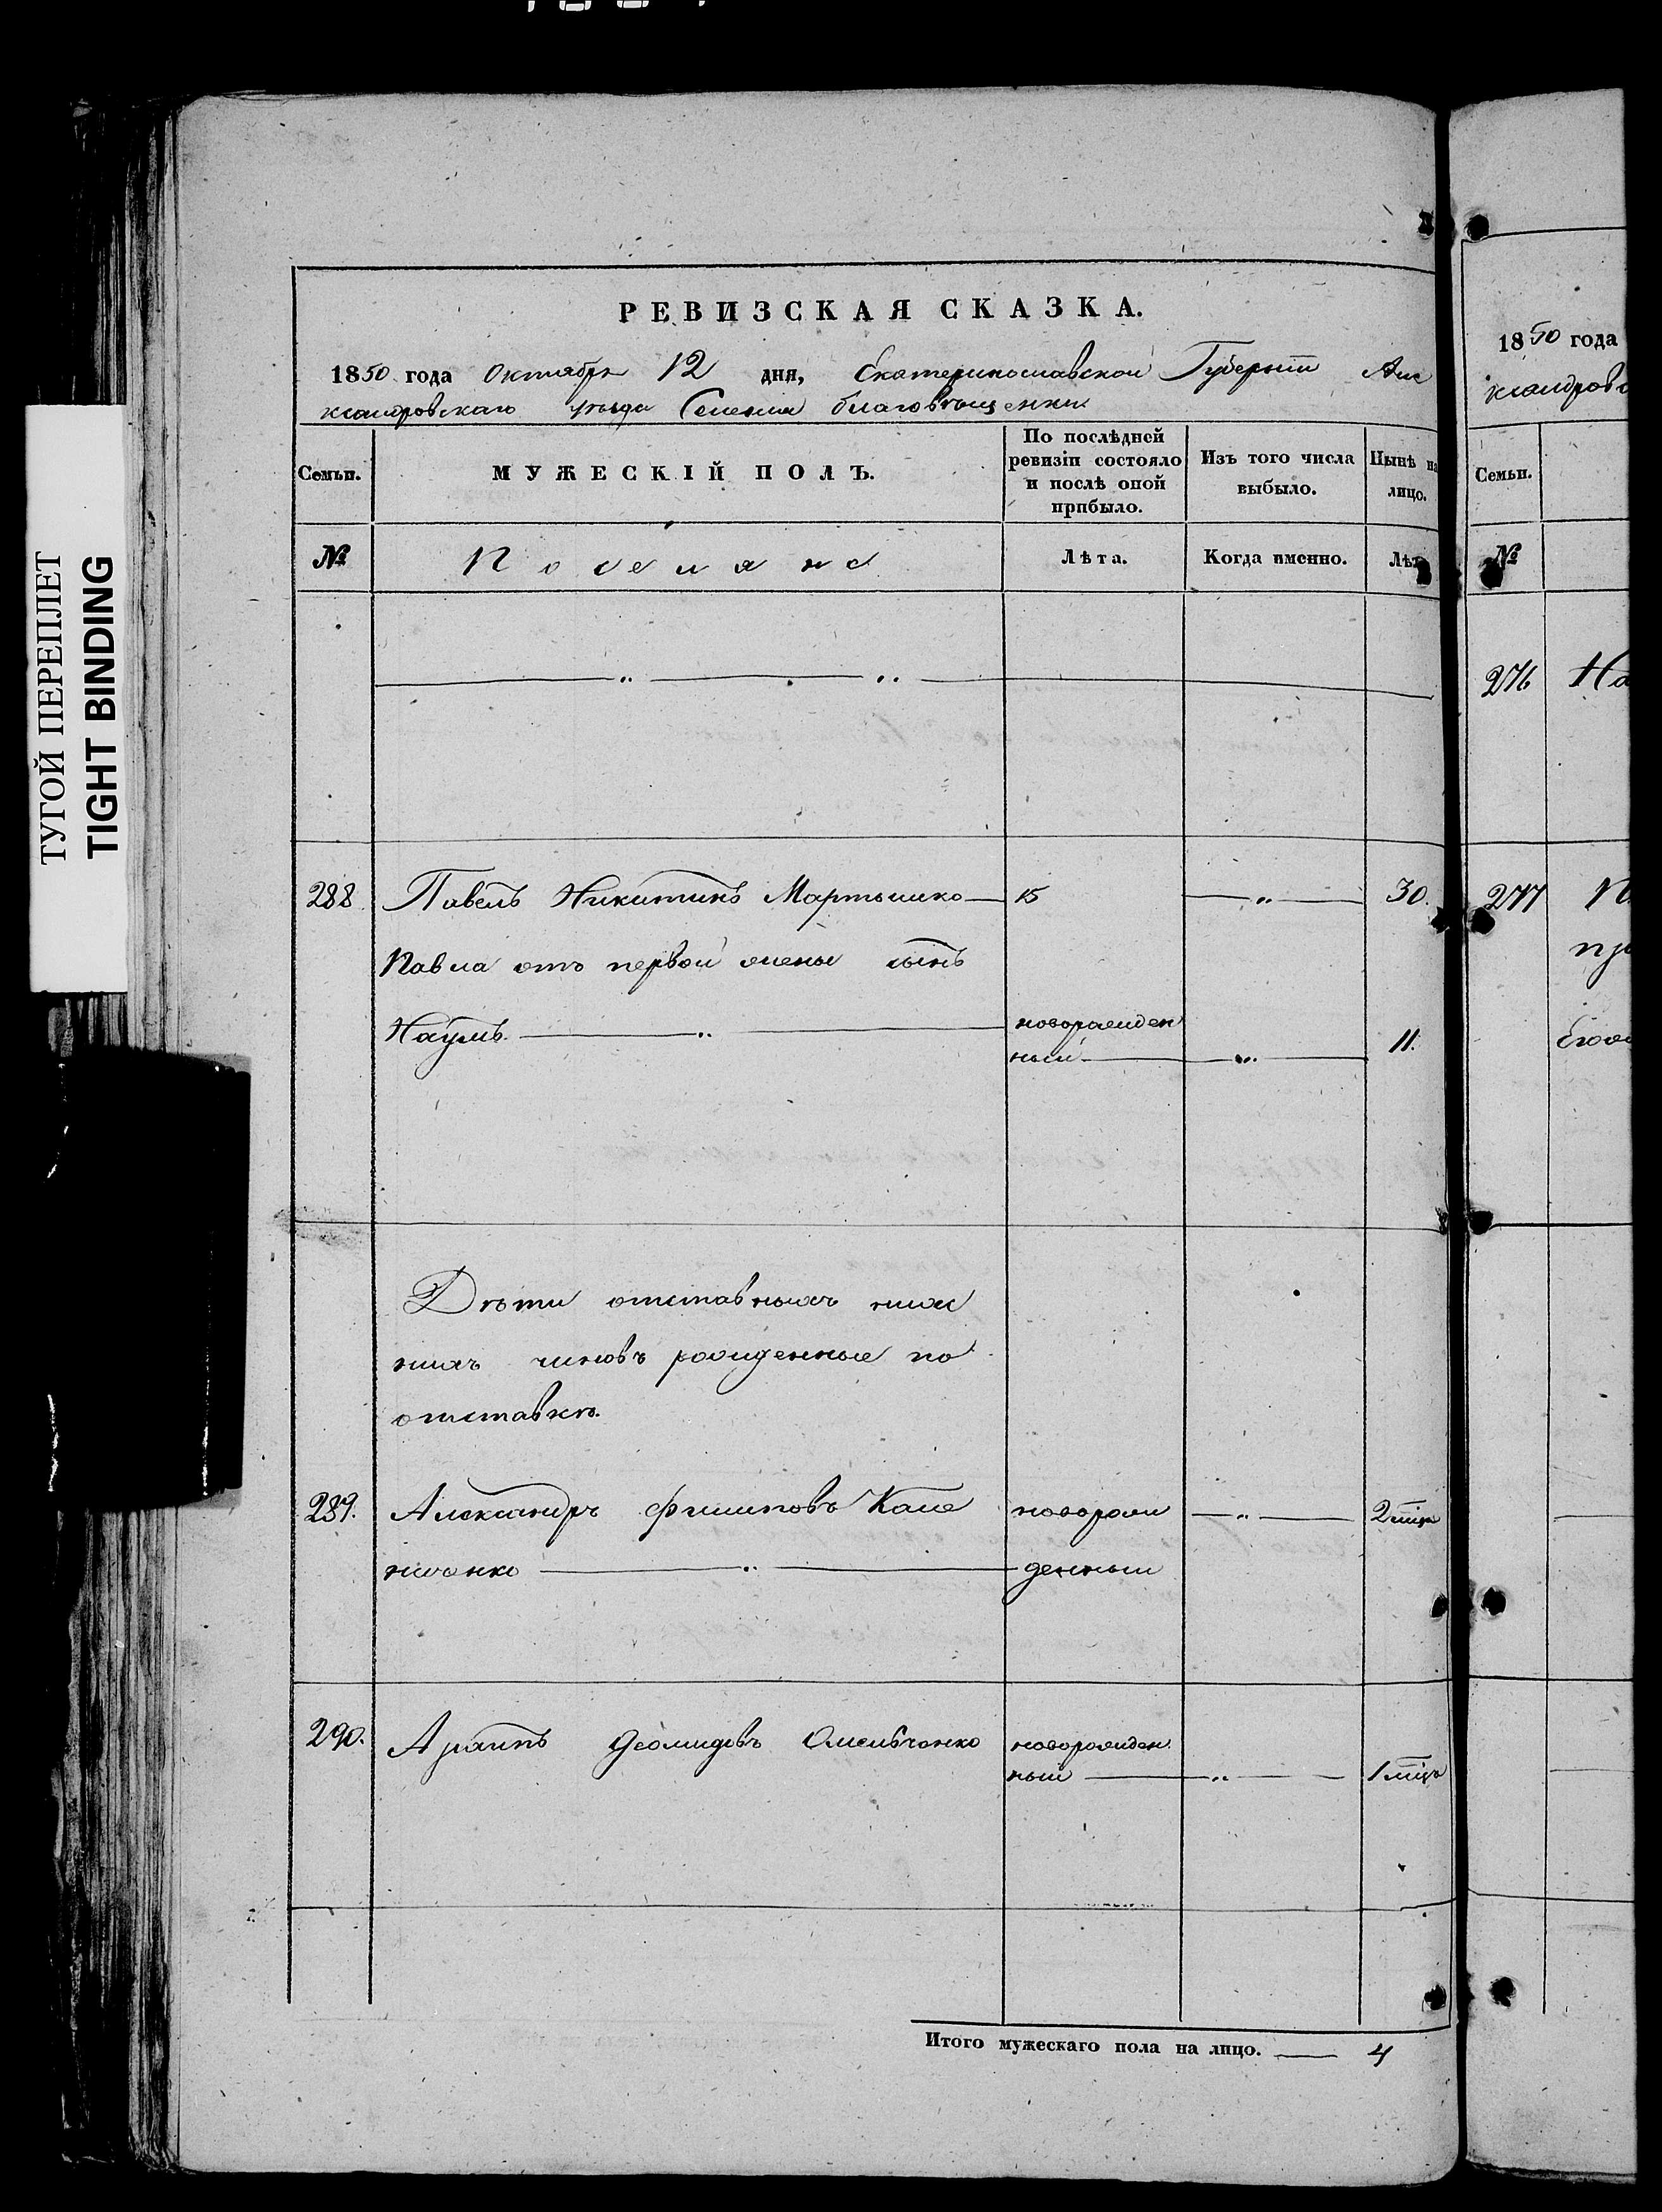 ТУГОЙ ПЕРЕПЛЕТ
TIGHT BINDING
РЕВИЗСКАЯ СКАЗКА.
1850 года Октября 12 дня, Екатеринославской Губернiи Але
ксандровскаго уѣзда Селенiя благовѣщенки
Семьи.
МУЖЕСКІЙ ПОЛЪ.
По послѣдней
ревизіи состояло
и послѣ оной
прибыло.
Изъ того числа
выбыло.
Нынѣ на
лицо.
№
Поселяне
Лѣта.
Когда именно.
Лѣт
288 Павелъ Никитинъ Мартышко 15 „ 30.
Павла отъ первой жены сынъ
Наумъ. „ новорожден
ный „ 11.
Дѣти отставныхъ ниж
нихъ чиновъ рожденные по
отставкѣ.
289. Александръ Филиповъ Кале новорож „ 2 мцa
ниченко „ денный
290. Архипъ Деомидовъ Омельченко новорожден
ный „ 1 мцъ
Итого мужескаго пола на лицо. 4
1850 года
ксандровс
Семьи.
№
276 На
277 П
пр
Его